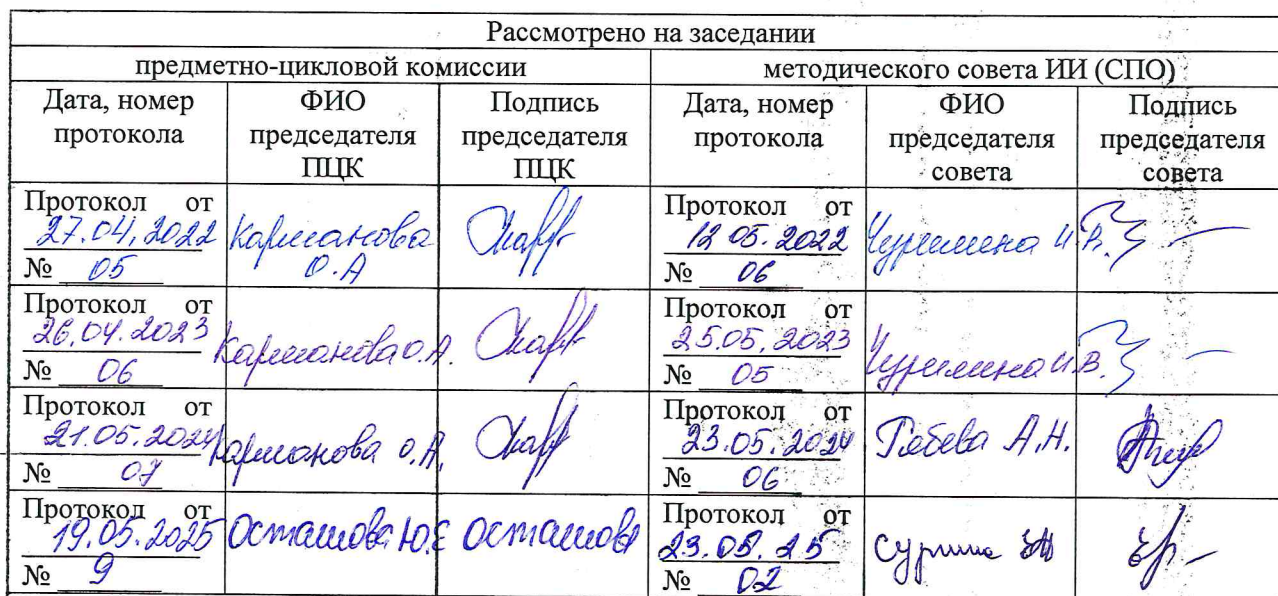 Рассмотрено на заседании
предметно-цикловой комиссии
методического совета ИИ (СПО)
Дата, номер протокола
ФИО председателя ПЦК
Подпись председателя ПЦК
Дата, номер протокола
ФИО председателя совета
Подпись председателя совета
Протокол от
27.04.2022
№ 05
Карманова
О.А
Протокол от
12 05.2022
№ 06
И.В.
Протокол от
26.04.2023
№ 06
Карманова О.А.
Протокол от
25.05.2023
№ 05
И.В.
Протокол от
21.05.2024
№ 07
Карманова О.А.
Протокол от
23.05.2024
№ 06
А.Н.
Протокол от
19.05.2025
№ 9
Осташова Ю.Е
Осташова
Протокол от
23.05.25
№ 02